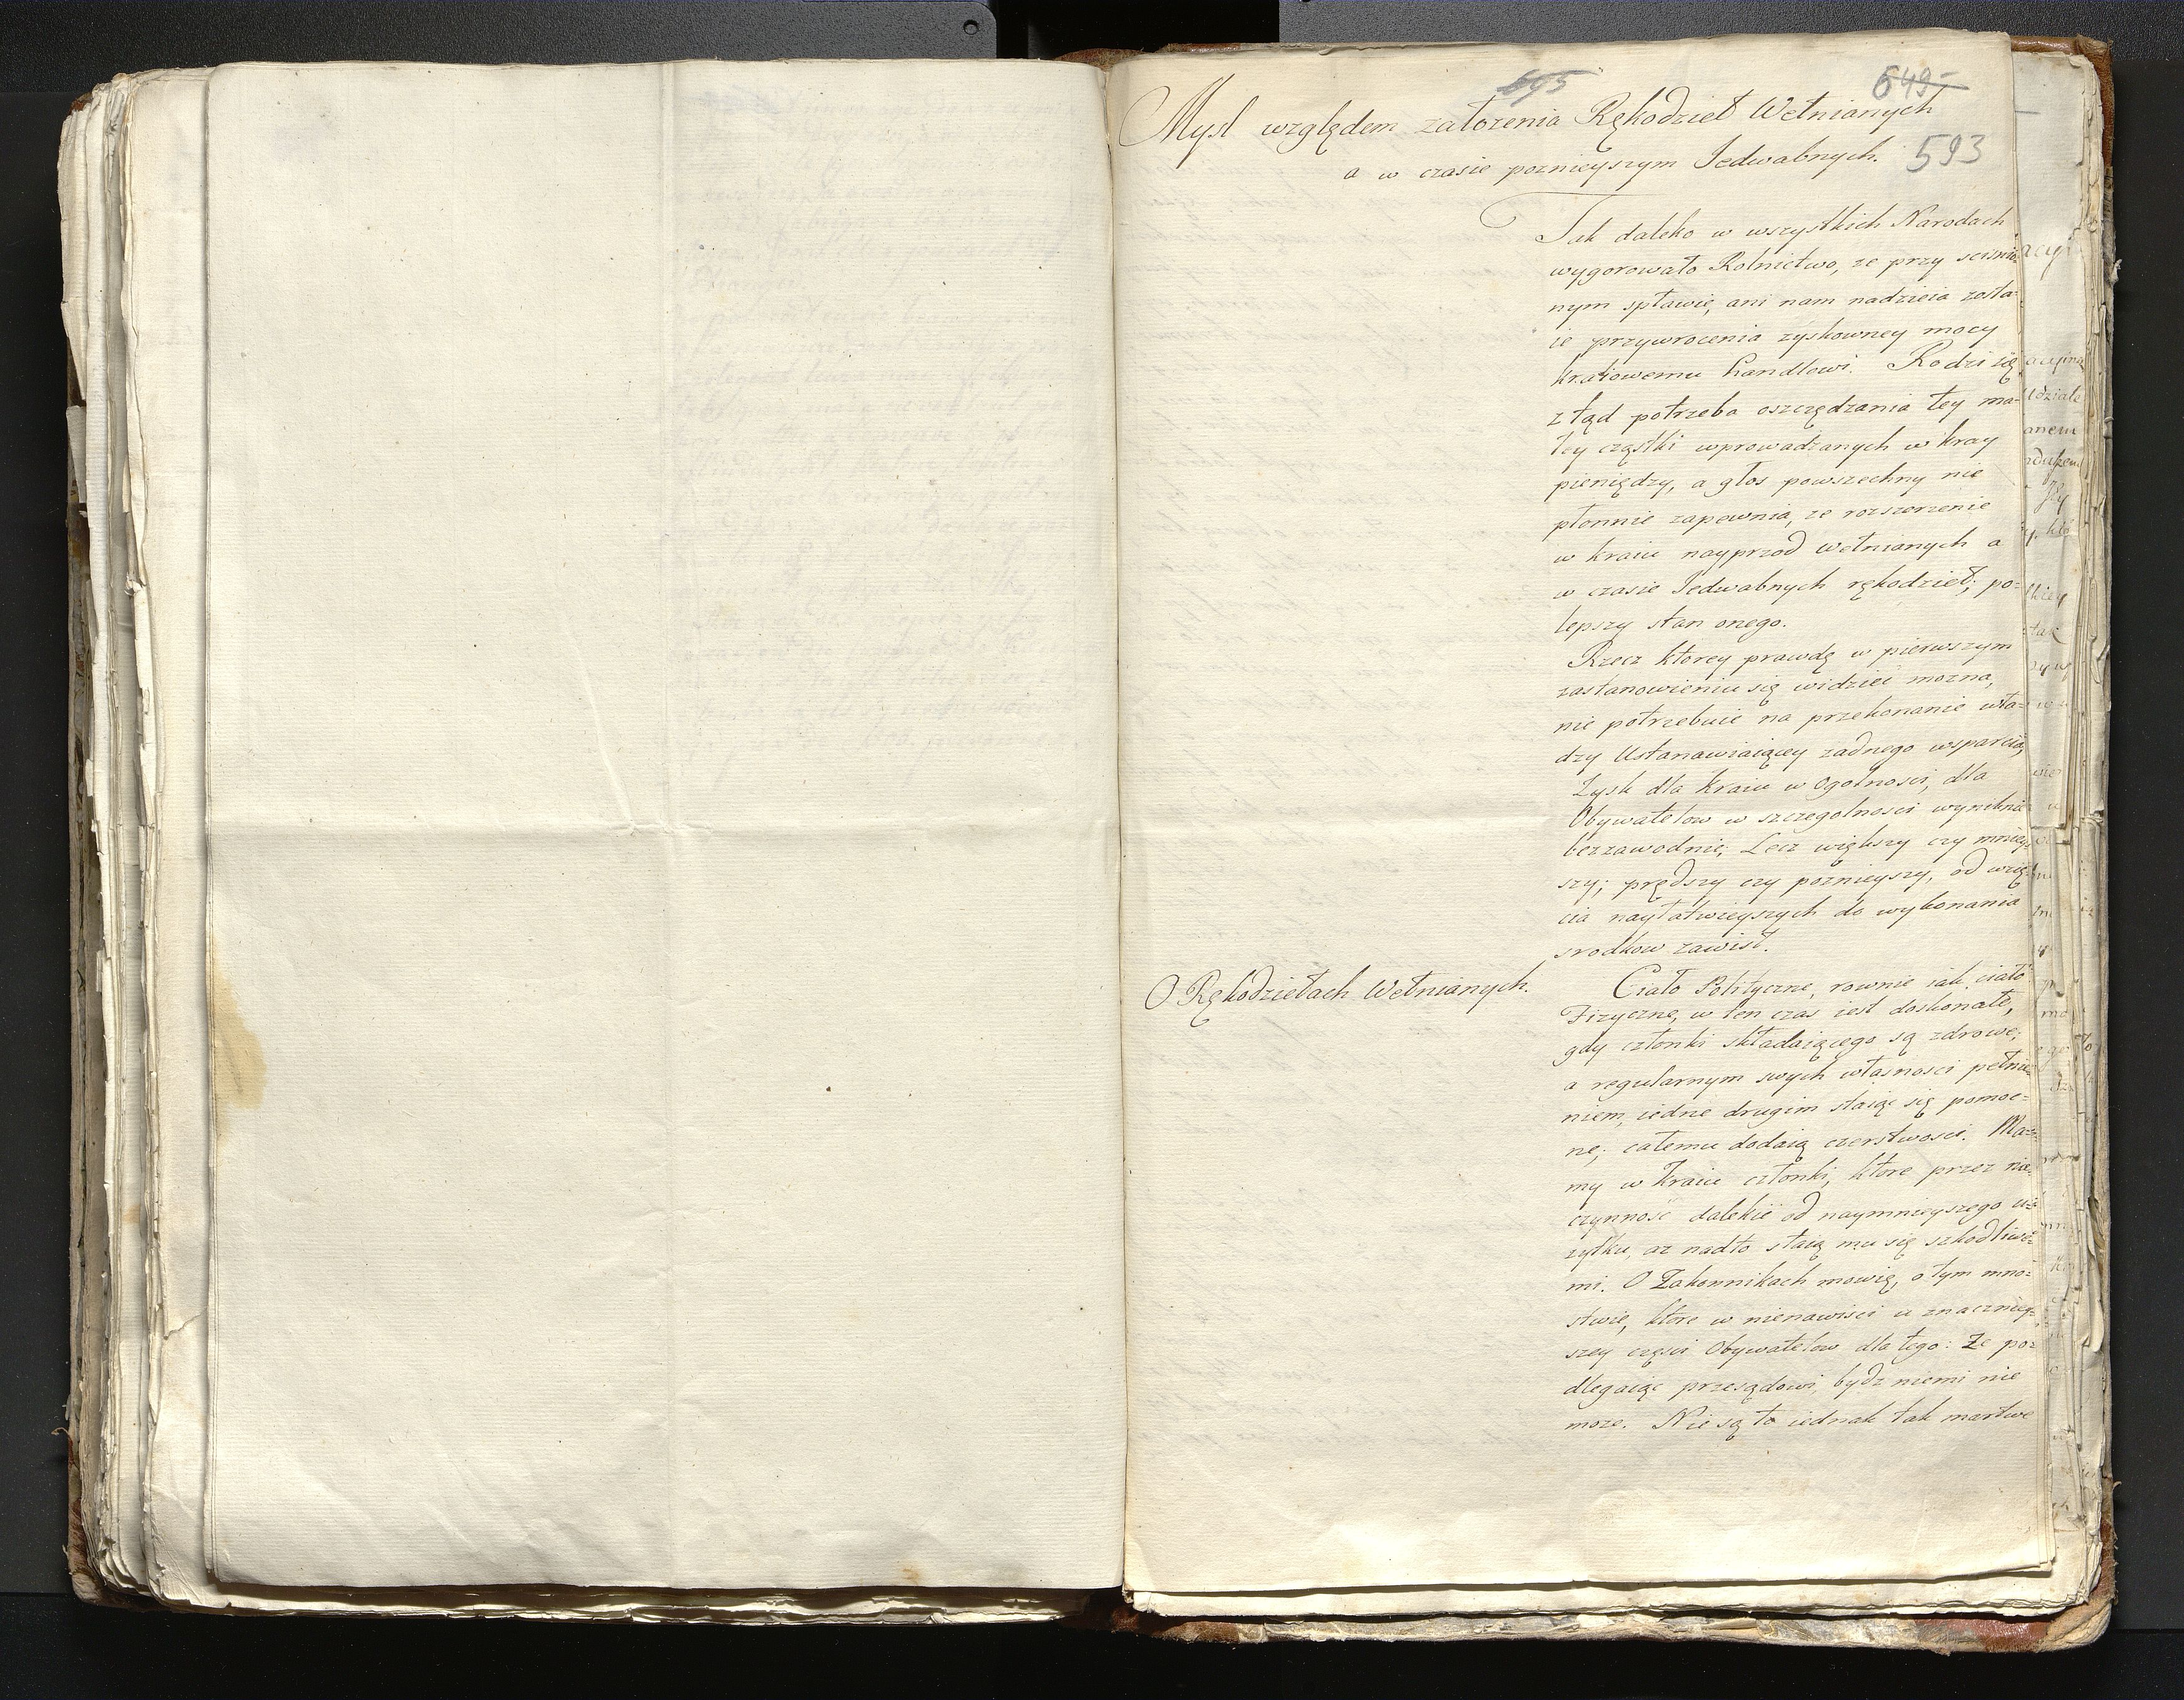 695
649
Mysl względem założenia Rękodzieł Wełnianych
593
a w czasie poznieyszym Jedwabnych.
Tak daleko w wszystkich Narodach
wygorowało Rolnictwo, ze przy scisnio=
nym spławie, ani nam nadzieia zosta=
ie przywrocenia zyskowney mocy
kraiowemu handlowi. Rodzi się
ztąd potrzeba oszczędzania tey ma=
łey cząstki wprowadzanych w kray
pieniędzy, a głos powszechny nie
płonnie zapewnia, ze rozszerzenie
w kraiu nayprzod wełnianych a
w czasie Jedwabnych rękodzieł; po=
lepszy stan onego.
Rzecz ktorey prawdę w pierwszym
zastanowieniu się widzieć mozna,
nie potrzebuie na przekonanie wła=
dzy Ustanawiaiącey zadnego wsparcia,
Zysk dla kraiu w Ogolnosci, dla
Obywatelow w szczegolnosci wyniknie
bezzawodnie; Lecz większy czy mniey=
szy; prędszy czy poznieyszy, od wzię=
cia nayłatwieyszych do wykonania
srodkow zawisł.
O Rękodziełach Wełnianych.
Ciało Polityczne, rownie iak ciało
Fizyczne, w ten czas iest doskonałe,
gdy członki składaiącego są zdrowe;
a regularnym swych własnosci pełnie=
niem, iedne drugim staiąc się pomoc=
ne; całemu dodaią czerstwosci. Ma=
my w kraiu członki, ktore przez nie=
czynność dalekie od naymnieyszego u=
zytku, az nadto staią mu się szkodliwe=
mi. O Zakonnikach mowię, o tym mno=
stwie, ktore w nienawisci u znaczniey=
szey części Obywatelow dla tego: Ze po=
dlegaiąc przesądowi, bydz niemi nie
moze. Nie są to iednak tak martwe